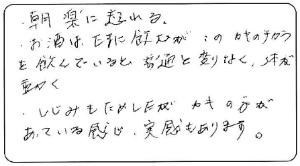 ・朝 楽に起れる。
・お酒はたまに飲むが このカキのチカラ
を飲んでいると 普通と変りなく、体が
動く
・しじみもためしたが カキの方が
あっている感じ、実感もあります。